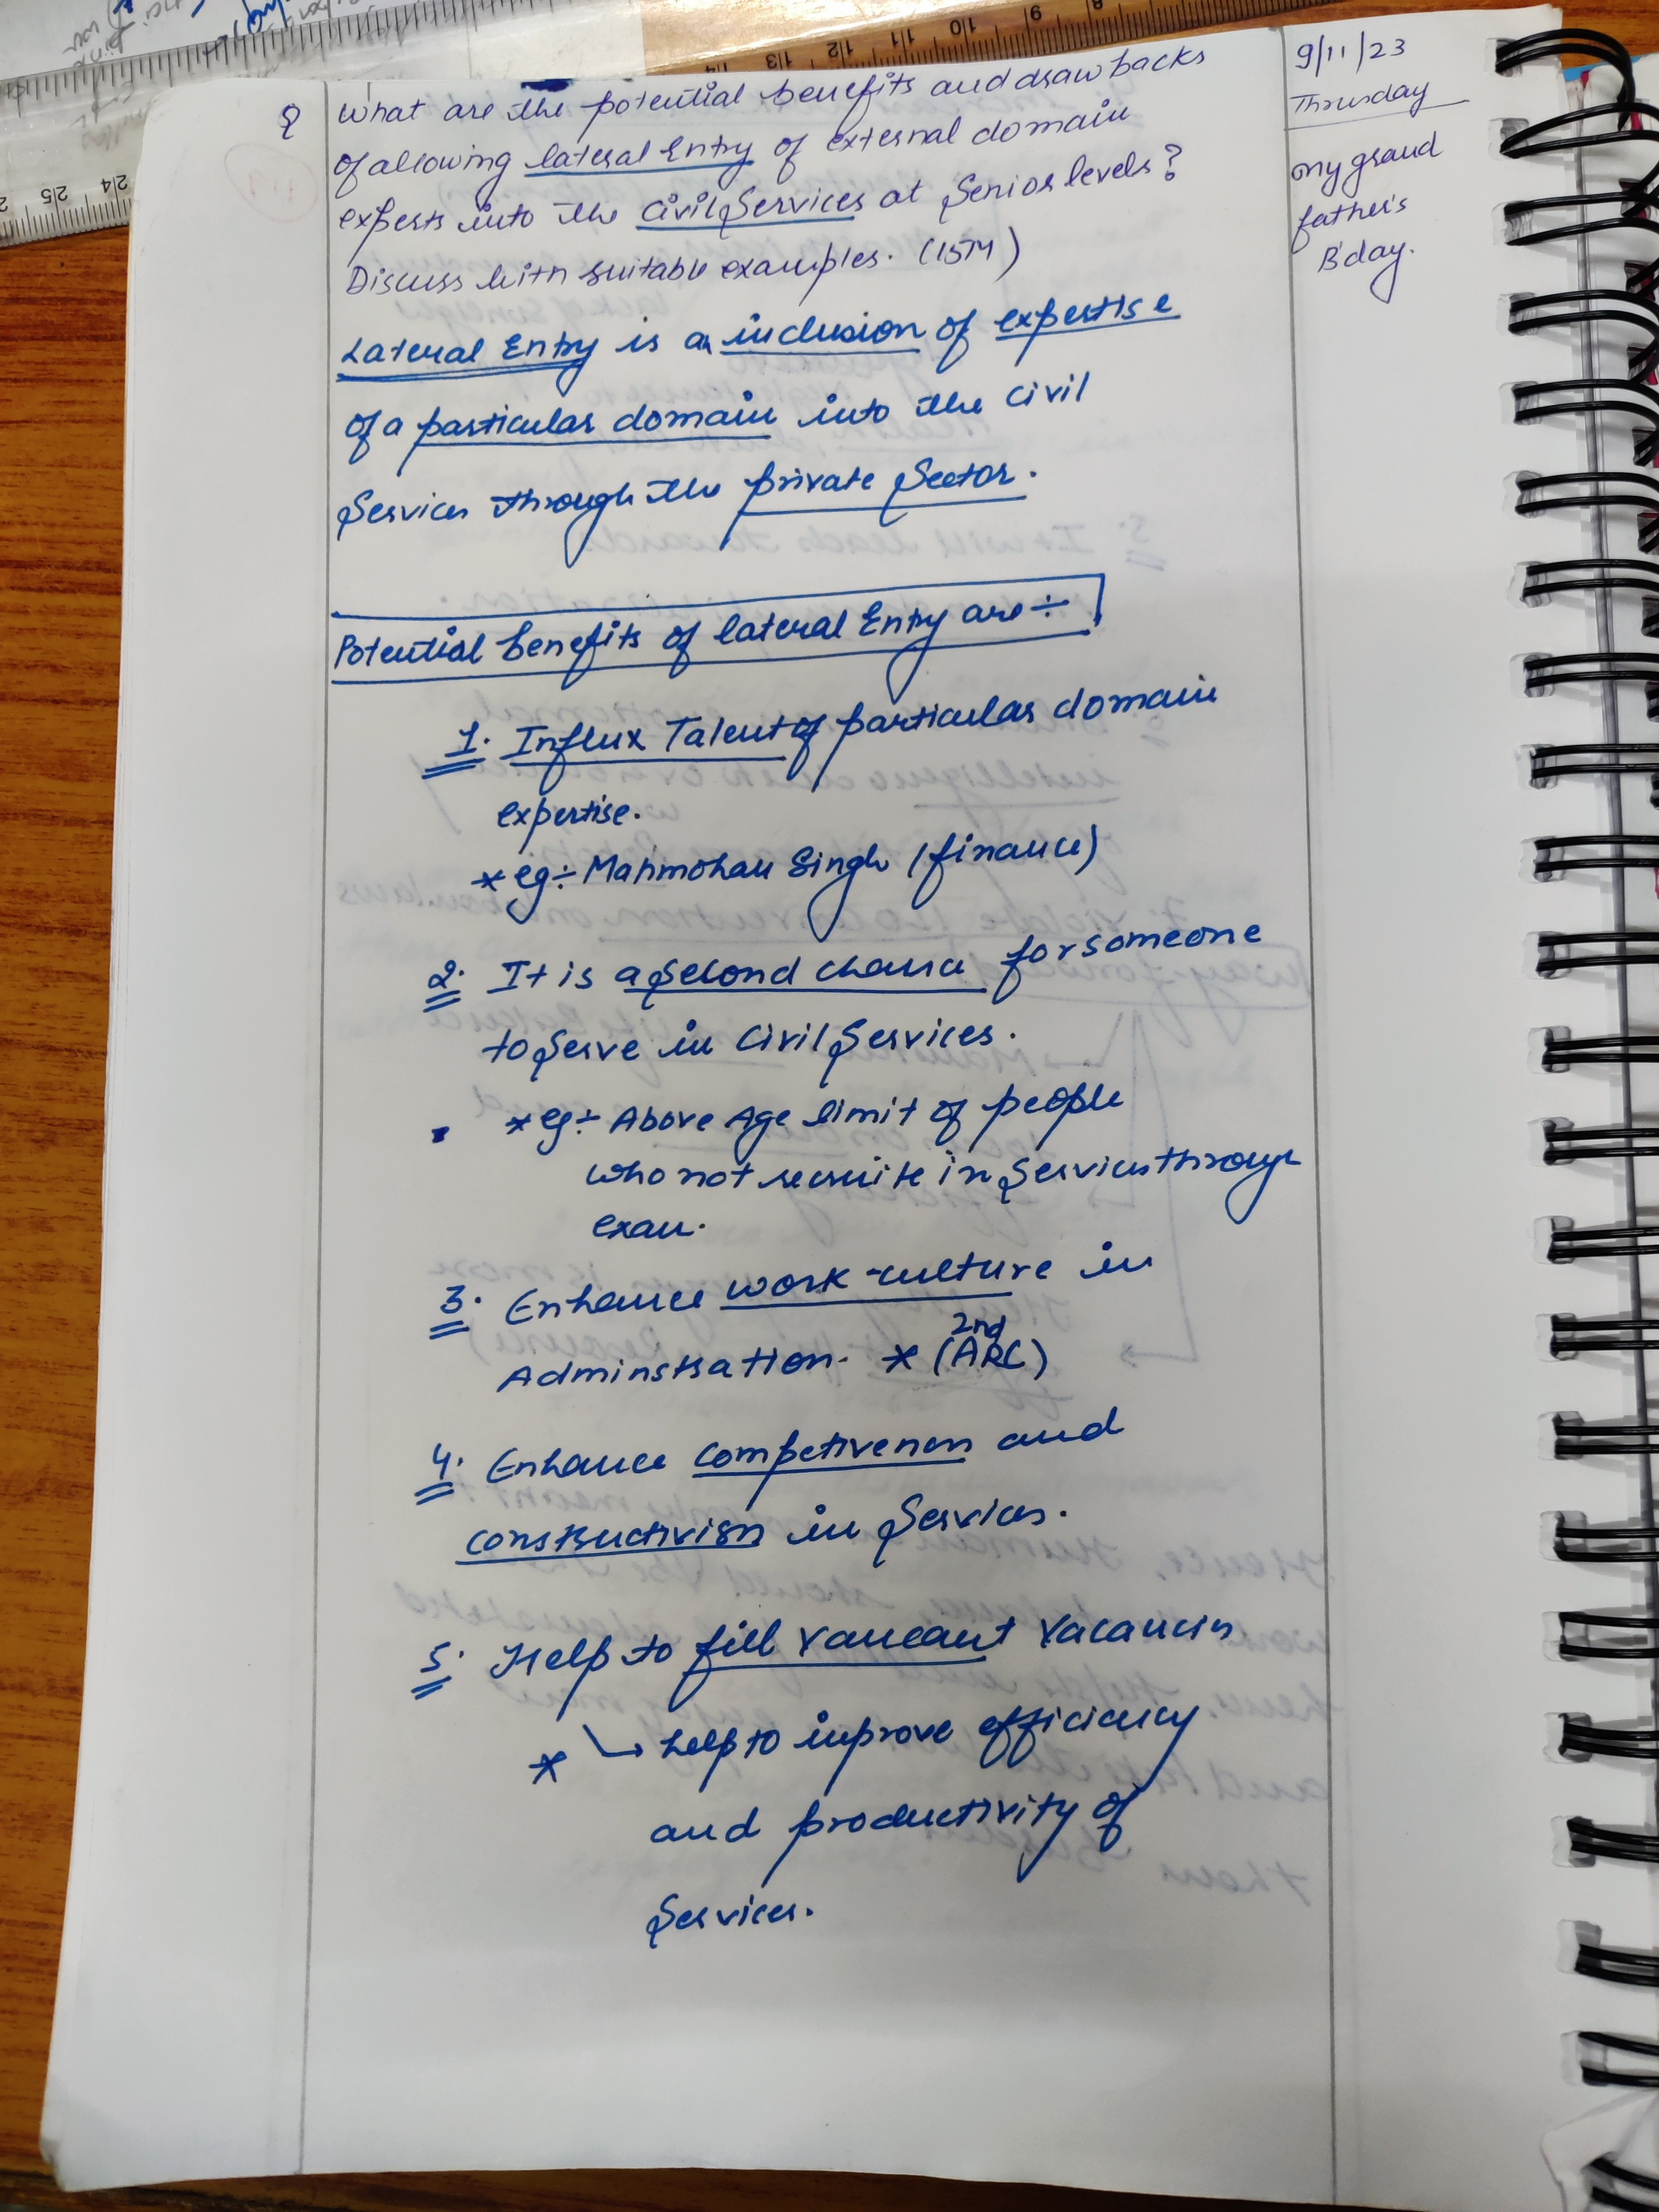 9/11/23
Thrusday
my grand
father's
B'day.
Q What are the potential benefits and drawbacks
of allowing lateral Entry of external domain
experts into the civil Services at Senior levels?
Discuss with suitable examples. (15M)
Lateral Entry is an inclusion of expertise
of a particular domain into the civil
Services through the private Sector.
Potential benefits of lateral Entry are÷
1. Influx Talent of particular domain
expertise.
* eg÷ Manmohan Singh (finance)
2. It is a second chance for someone
to serve in Civil Services.
* eg÷ Above Age limit of people
who not recruite in Services through
exam.
3. Enhance work-culture in
Adminstration. * (2nd ARC)
4. Enhance competiveness and
constructivism in Services.
5. Help to fill vancant vacancies
* ↳ help to improve efficiency
and productivity of
Services.